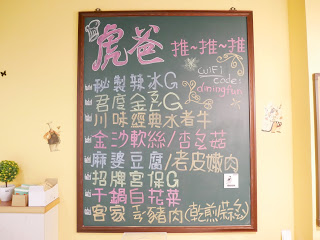 虎爸 推~推~推
WiFi
code:
diningfun
秘製辣冰G
君度金芒G
川味經典水煮牛
金沙軟絲/杏蒼
麻婆豆腐/老皮嫩肉
招牌宮保G
干鍋白花菜
客家 豬肉(乾煎